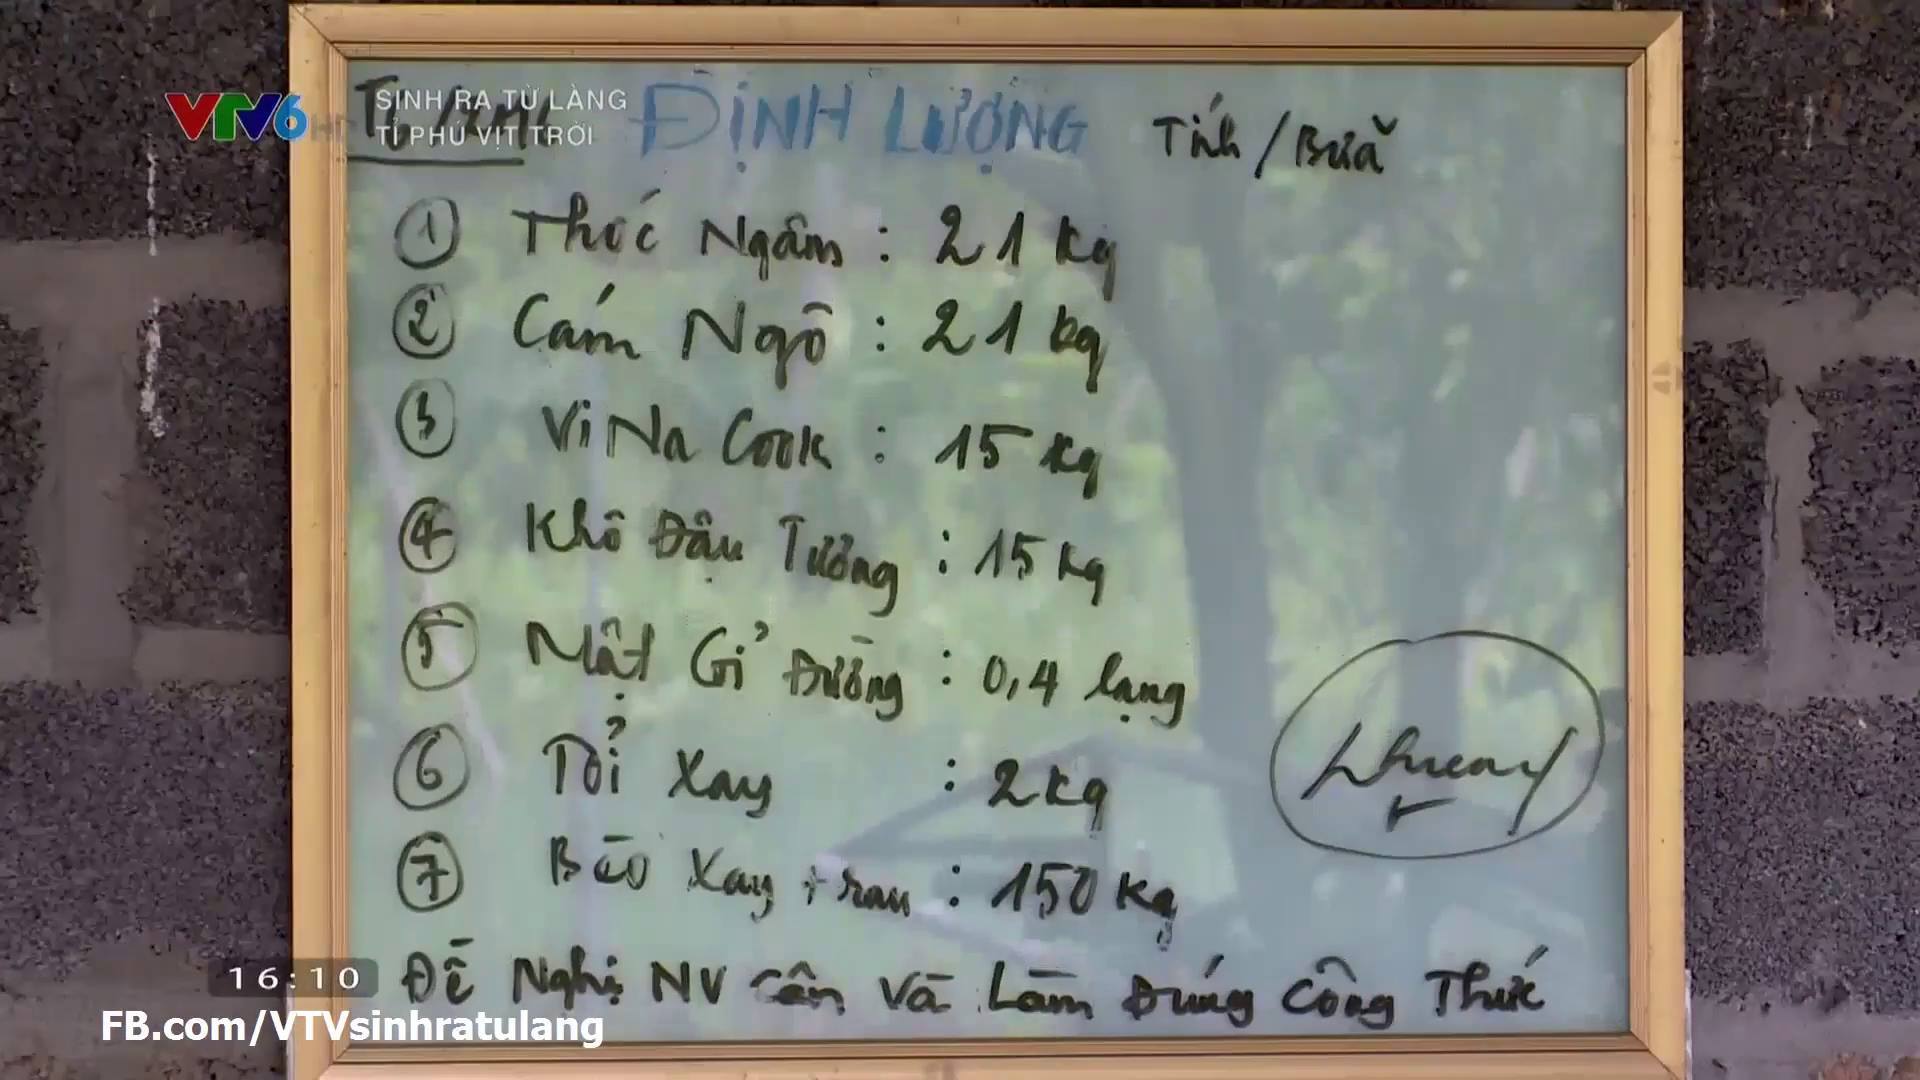 VTV6
SINH RA TỪ LÀNG
TỈ PHÚ VỊT TRỜI
ĐỊNH LƯỢNG Tính/Bữa
1 Thóc Ngâm : 21 kg
2 Cám Ngô : 21 kg
3 Vi Na Cook : 15 kg
4 Khô Đậu Tương : 15 kg
5 Mật Gỉ Đường : 0,4 lạng
6 Tỏi xay : 2 kg
7 Bèo Xay + rau : 150 kg
Đề Nghị NV Cân Và Làm Đúng Công Thức
16:10
FB.com/VTVsinhratulang